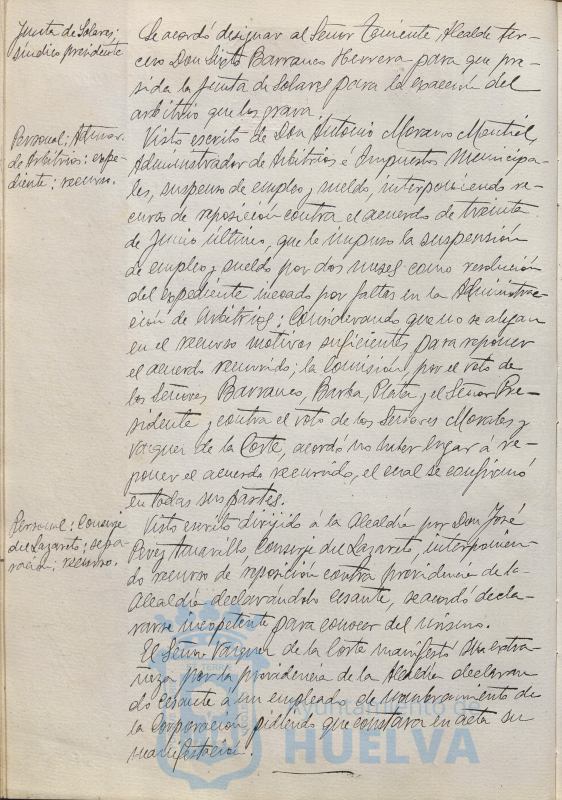 Junta de Solares;
síndico presidente
Se acordó designar al Señor Teniente Alcalde ter-
cero Don Sixto Barranco Herrera para que pre-
sida la Junta de Solares para la exacción del
arbitrio que los grava.
Personal; Admor.
de Arbitrios; expe-
diente; recurso.
Visto escrito de Don Antonio Moreno
Administrador de Arbitrios é Impuestos municipa-
les, suspenso de empleo y sueldo, interponiendo re-
curso de reposición contra el acuerdo de treinta
de Junio último, que le impuso la suspensión
de empleo y sueldo por dos meses como resolución
del expediente incoado por faltas en la Administra-
ción de Arbitrios; Considerando que no se alegan
en el recurso motivos suficientes para reponer
el acuerdo recurrido; la Comisión, por el voto de
los Señores Barranco, Barba, Plata y el Señor Pre-
sidente y contra el voto de los Señores Morales y
Vazquez de la Corte, acordó no haber lugar á re-
poner el acuerdo recurrido, el cual se confirmó
en todas sus partes.
Personal; Conserje
del Lazareto; sepa-
ración; recurso.
Visto escrito dirigido á la Alcaldía por Don José
Perez Amarillo, Conserje del Lazareto, interponien-
do recurso de reposición contra providencia de la
Alcaldía declarandolo cesante, se acordó decla-
rarse incopetente para conocer del mismo.
El Señor Vazquez de la Corte manifestó su extra-
ñeza por la providencia de la Alcaldía declaran-
do cesante a un empleado de nombramiento de
la Corporación pidiendo que constara en acta su
manifestación.
Ayuntamiento de
HUELVA